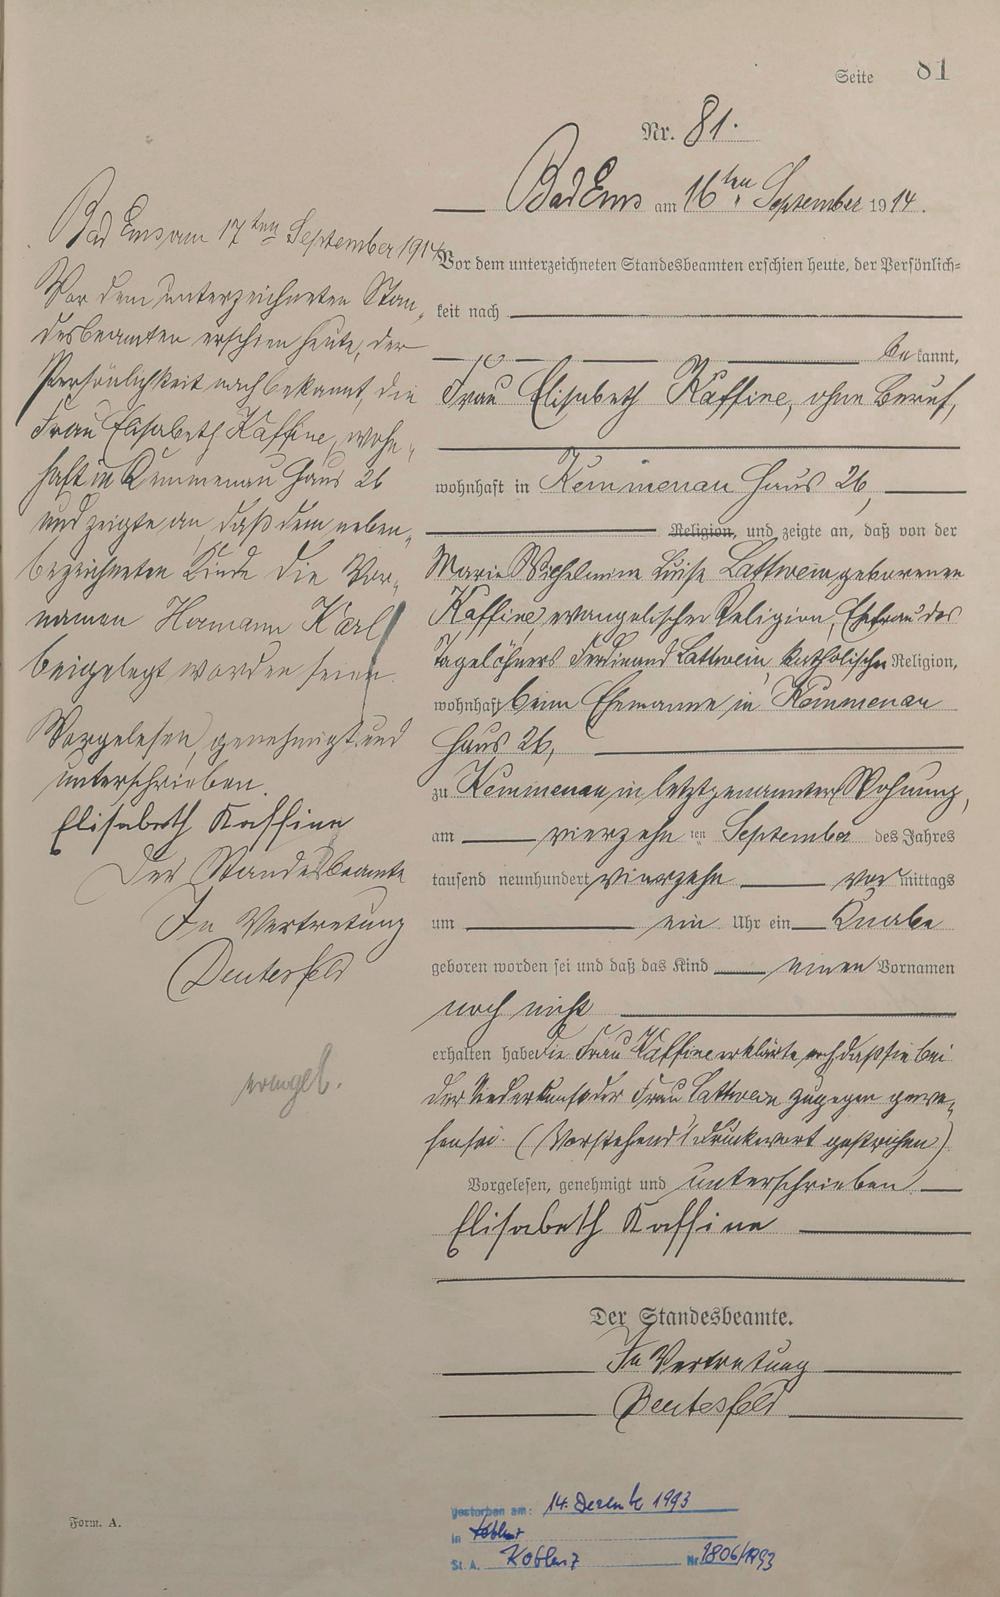 Seite 81
Nr. 81.
Bad Ems am 16ten September 1914.
Vor dem unterzeichneten Standesbeamten erschien heute, der Persönlich-
keit nach
bekannt,
Frau Elisabeth Kaffine, ohne Beruf,
wohnhaft in Kemmenau Haus 26,
Religion, und zeigte an, daß von der
Marie Wilhelmine Luise Lattwein geborenen
Kaffine, evangelischer Religion, Ehefrau des
Tagelöhners Ferdinand Lattwein, katholischer Religion,
wohnhaft beim Ehemanne in Kemmenau
Haus 26,
zu Kemmenau in letztgenannter Wohnung,
am vierzehnten September des Jahres
tausend neunhundert vierzehn vormittags
um ein Uhr ein Knabe
geboren worden sei und daß das Kind einen Vornamen
noch nicht
erhalten habe. Die Frau Kaffine erklärte noch, daß sie bei
der Niederkunft der Frau Lattwein zugegen gewe-
sen sei. (Vorstehend 1 Druckwort gestrichen)
Vorgelesen, genehmigt und unterschrieben
Elisabeth Kaffine
Der Standesbeamte.
In Vertretung
Deutesfeld
Bad Ems am 17ten September 1914
Vor dem unterzeichneten Stan-
desbeamten erschien heute, der
Persönlichkeit nach bekannt, die
Frau Elisabeth Kaffine, wohn-
haft in Kemmenau Haus 26
und zeigte an, daß dem neben-
bezeichneten Kinde die Vor-
namen Hermann Karl
beigelegt worden seien.
Vorgelesen, genehmigt und
unterschrieben.
Elisabeth Kaffine
Der Standesbeamte
In Vertretung
Deutesfeld
evangel.
Form. A.
gestorben am: 14. Dezember 1993
in Koblenz
St. A. Koblenz Nr. 1806/1993